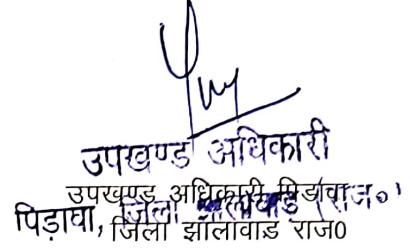 उपखण्ड अधिकारी
उपखण्ड अधिकारी पिडावा
पिड़ावा, जिला झालावाड़ (राज०)
जिला झालावाड राज0